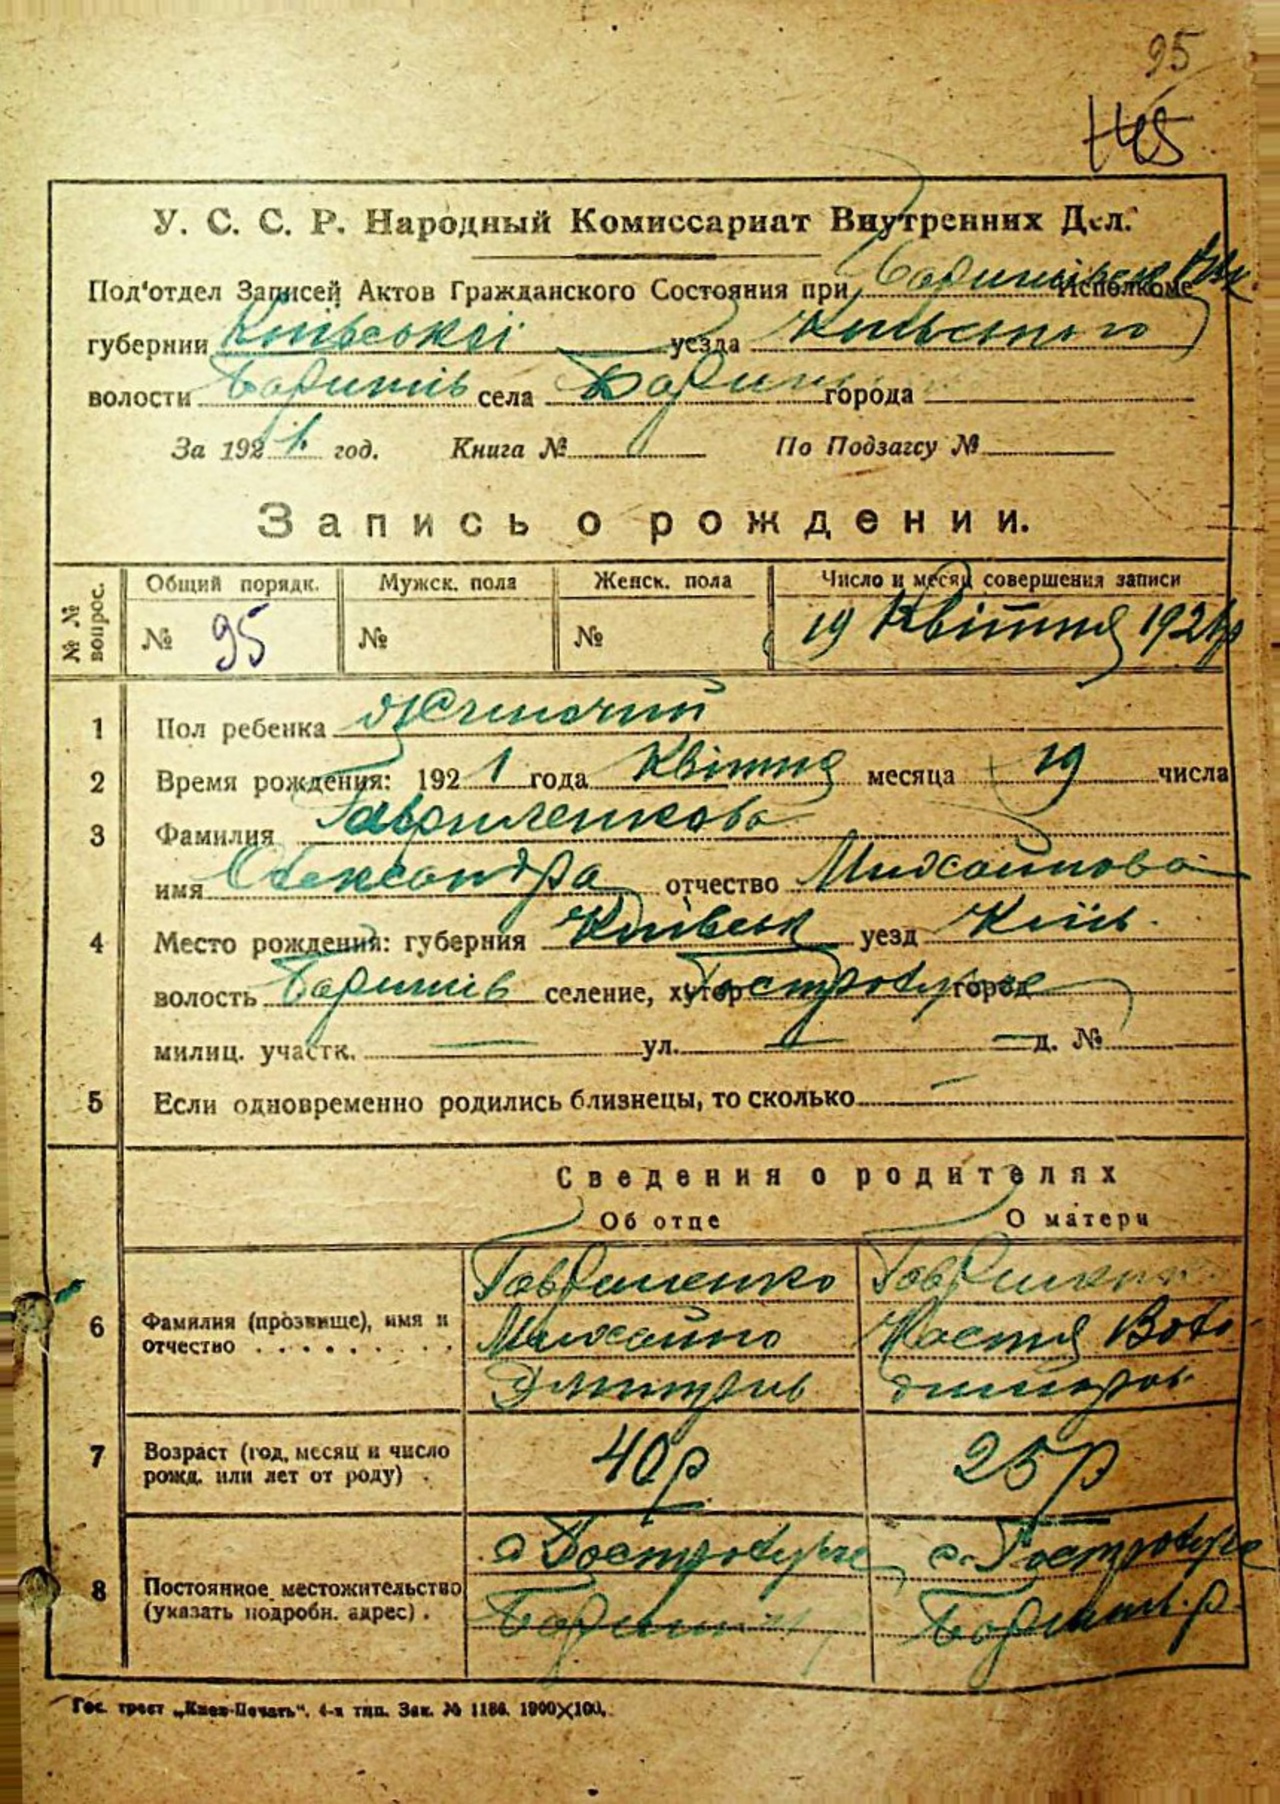 95
145
У. С. С. Р. Народный Комиссариат Внутренних Дел.
Под'отдел Записей Актов Гражданского Состояния при Исполкоме
губернии Київської уезда Київського
волости Баришів села города
За 1921. год. Книга № По Подзагсу №
Запись о рождении.
№ № вопрос. Общий порядк. Мужск. пола Женск. пола Число и месяц совершения записи
№ 95 № № 19 Квітня 1921р
1 Пол ребенка Жіночий
2 Время рождения: 1921 года Квітня месяца 19 числа
3 Фамилия Гавриленкова
имя Олександра отчество Михайлова
4 Место рождения: губерния Київськ уезд Київ.
волость Баришів селение, хутор Гостролучє город
милиц. участк. — ул. — д. №
5 Если одновременно родились близнецы, то сколько —
Сведения о родителях
Об отце О матери
Гавриленко
6 Фамилия (прозвище), имя и отчество . . . . . . . . . . Михайло Настя Воло-
Дмитрів димиров.
7 Возраст (год, месяц и число рожд. или лет от роду) . 40р 25р
8 Постоянное местожительство (указать подробн. адрес) . с Гостролуччє с. Гостролучє
Баришів. р.
Гос. трест „Киев-Печать“. 4-я тип. Зак. № 1186. 1900×100.